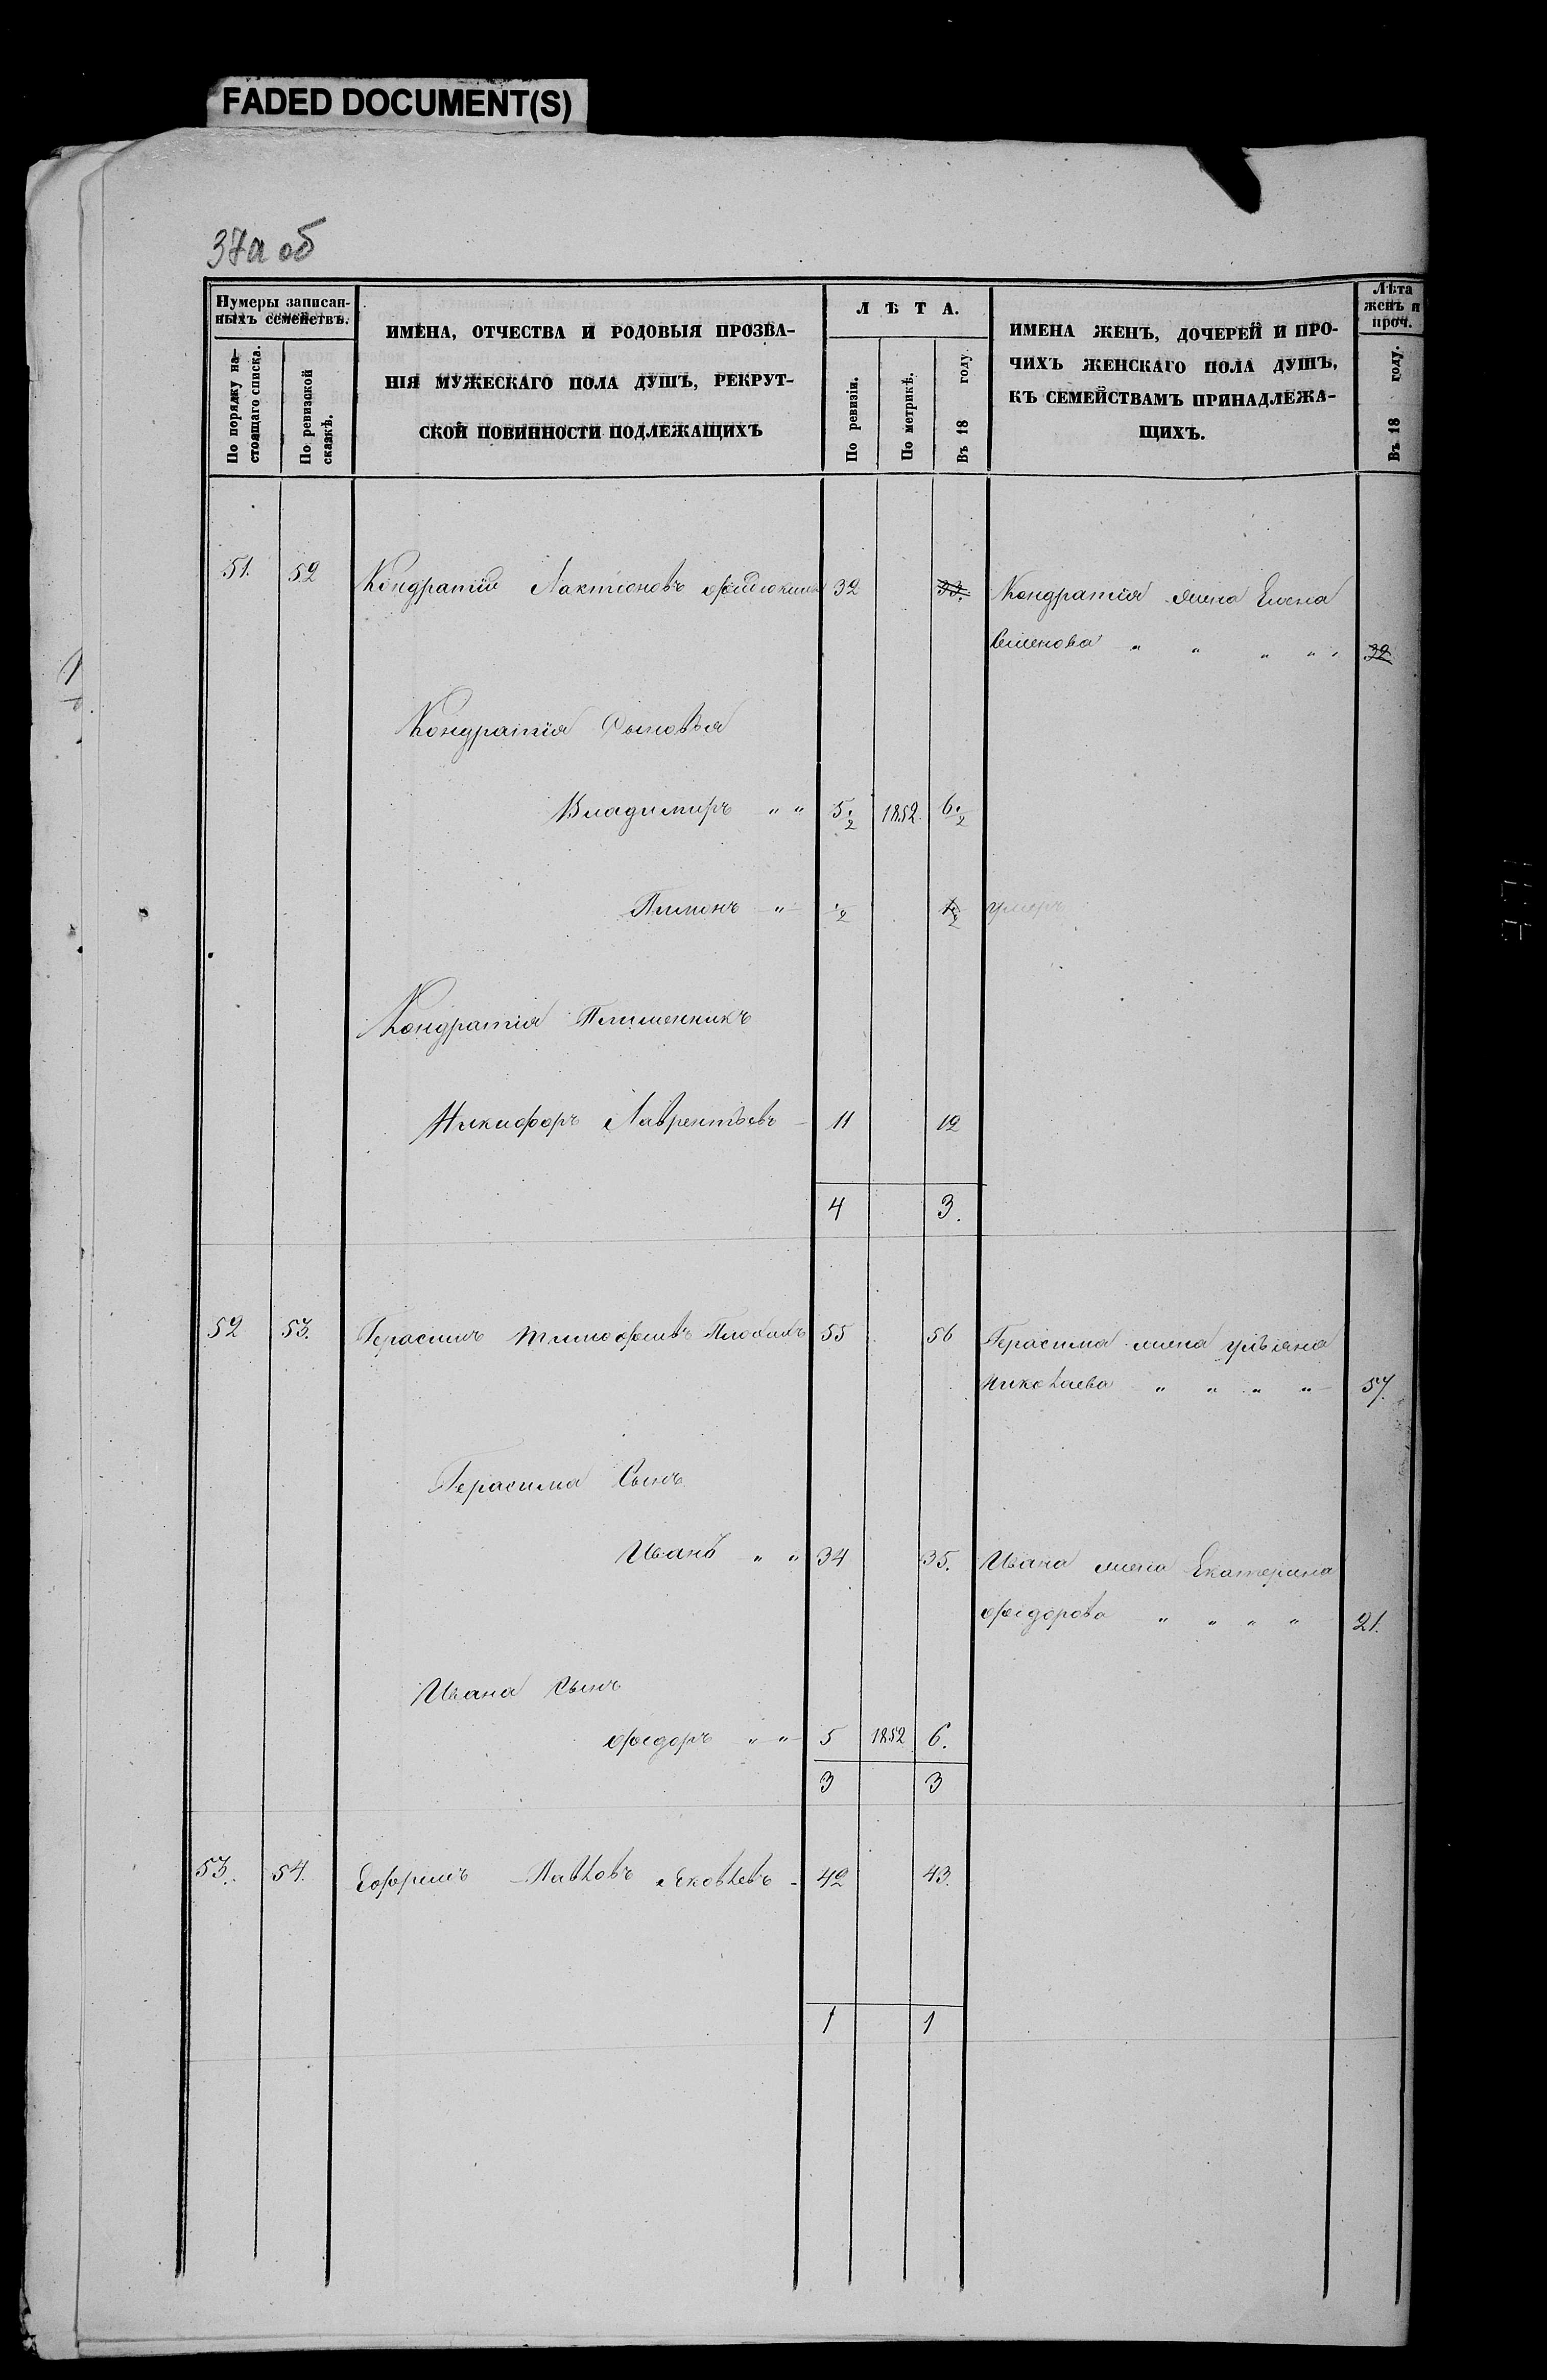 FADED DOCUMENT(S)
37а об
Нумеры записан-
ныхъ семействъ.
По порядку на-
стоящаго списка.
По ревизской
сказкѣ.
ИМЕНА, ОТЧЕСТВА И РОДОВЫЯ ПРОЗВА-
НІЯ МУЖЕСКАГО ПОЛА ДУШЪ, РЕКРУТ-
СКОЙ ПОВИННОСТИ ПОДЛЕЖАЩИХЪ
ЛѢТА.
По ревизіи.
По метрикѣ.
Въ 18 году.
ИМЕНА ЖЕНЪ, ДОЧЕРЕЙ И ПРО-
ЧИХЪ ЖЕНСКАГО ПОЛА ДУШЪ,
КЪ СЕМЕЙСТВАМЪ ПРИНАДЛЕЖА-
ЩИХЪ.
Лѣта
женъ и
проч.
Въ 18 году.
51. 52 Кондратій Лактіоновъ 32 33. Кондратія жена Елена
Семенова " " " " " 32
Кондратія Сыновья
Владимиръ " " 5 1/2 1852. 6 1/2
Пименъ " 1/2 1 1/2 умеръ
Кондратія Племенникъ
Никифоръ Лаврентьевъ 11 12
4 3.
52 53. Герасимъ Тимофеевъ 55 56 Герасима жена Ульяна
Николаева " " " " 57.
Герасима Сынъ
Иванъ " " 34 35. Ивана жена Екатерина
Федорова " " " " 21.
Ивана Сынъ
Федоръ " " 5 1852 6.
3 3
53. 54. Ефремъ Павловъ Яковлевъ 42 43.
1 1